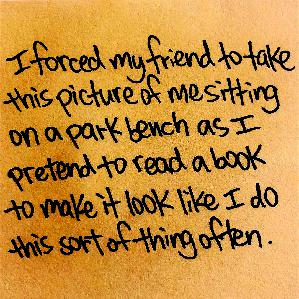 I forced my friend to take
this picture of me sitting
on a park bench as I
pretend to read a book
to make it look like I do
this sort of thing often.